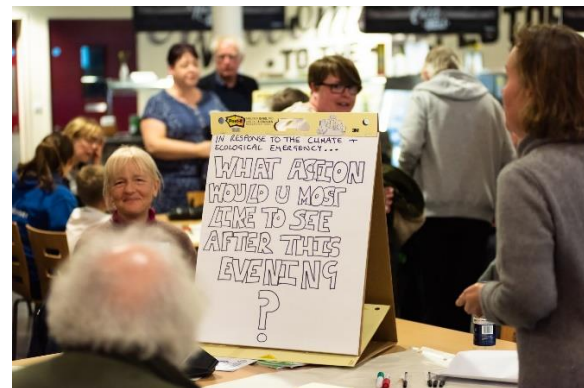 TO THE
Post-it
3M
IN RESPONSE TO THE CLIMATE +
ECOLOGICAL EMERGENCY...
WHAT ACTION
WOULD U MOST
LIKE TO SEE
AFTER THIS
EVENING
?